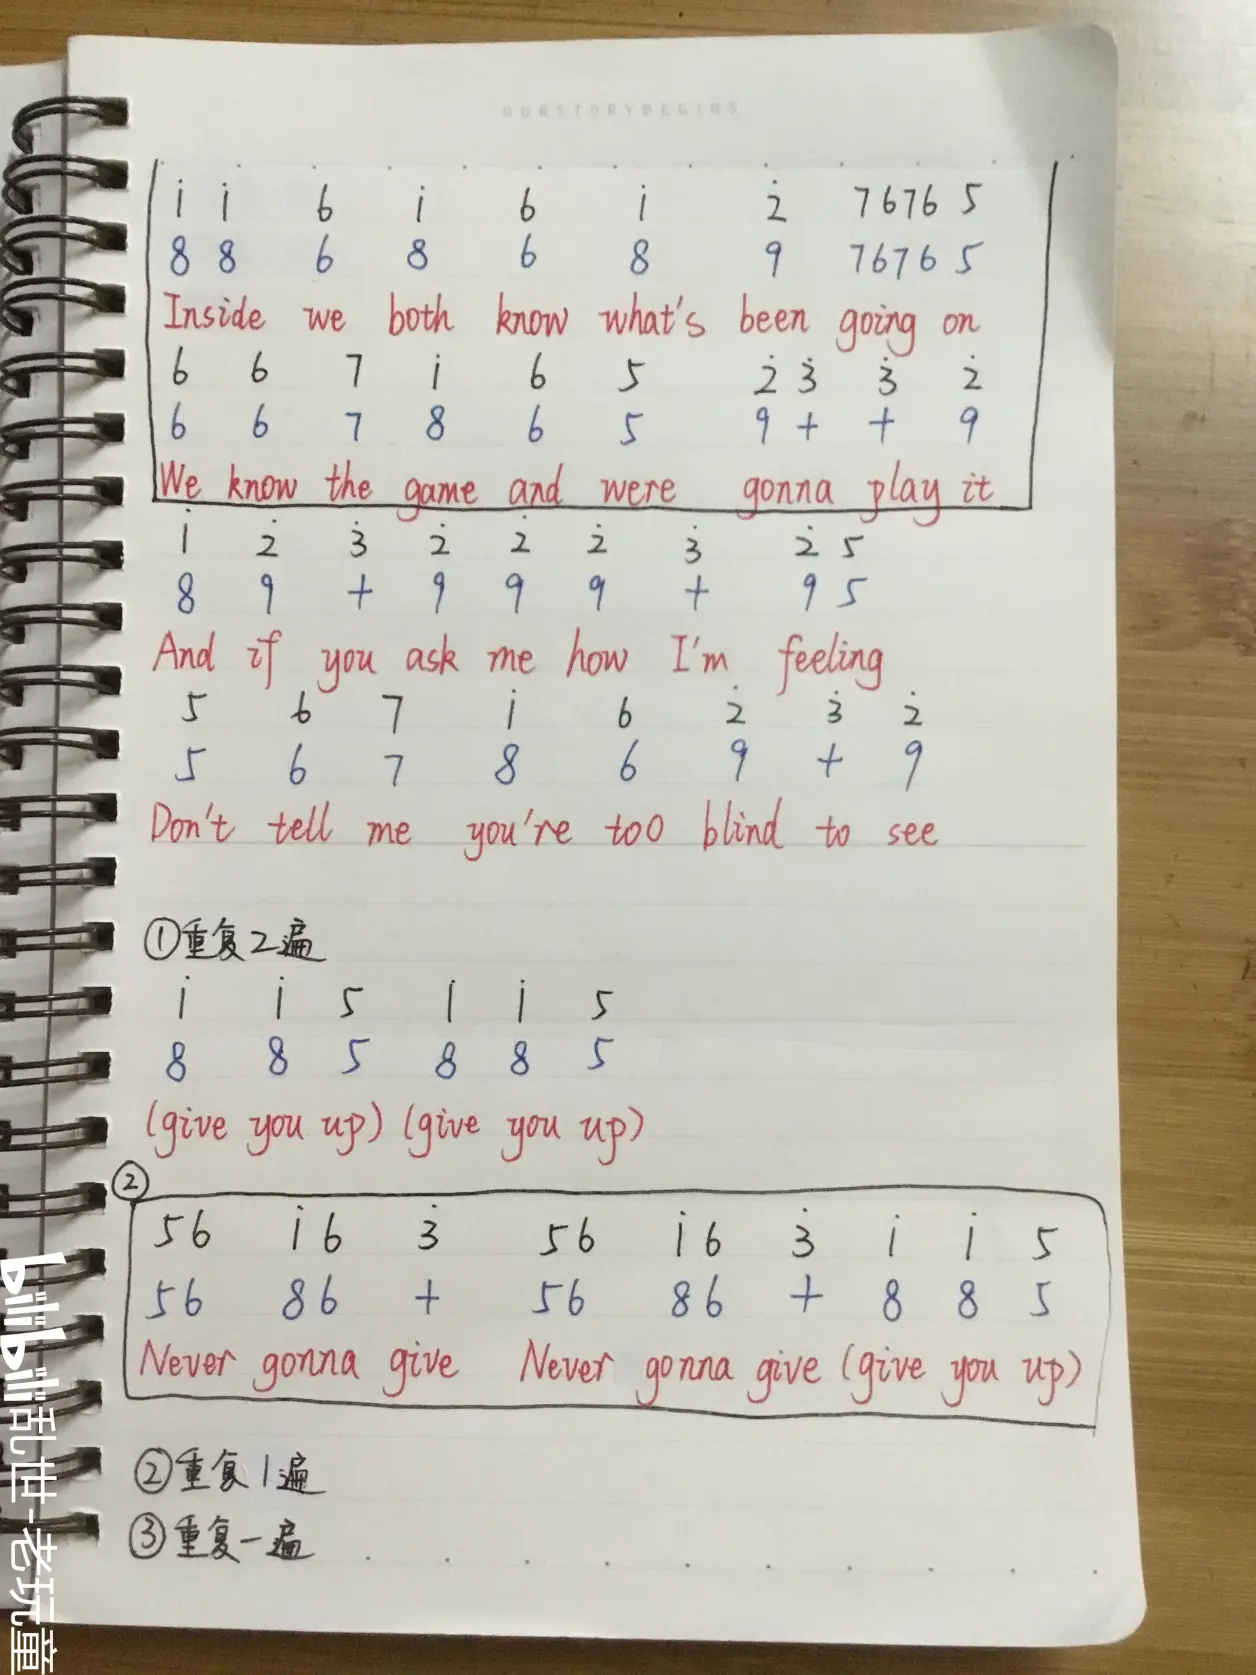 OURSTORYBEGINS
i i 6 i 6 i 2̇ 7676 5
8 8 6 8 6 8 9 7676 5
Inside we both know what's been going on
6 6 7 i 6 5 2̇ 3̇ 3̇ 2̇
6 6 7 8 6 5 9 + + 9
We know the game and were gonna play it
i 2̇ 3̇ 2̇ 2̇ 2̇ 3̇ 2̇ 5
8 9 + 9 9 9 + 9 5
And if you ask me how I'm feeling
5 6 7 i 6 2̇ 3̇ 2̇
5 6 7 8 6 9 + 9
Don't tell me you're too blind to see
①重复2遍
i i 5 i i 5
8 8 5 8 8 5
(give you up) (give you up)
②
56 i6 3̇ 56 i6 3̇ i i 5
56 86 + 56 86 + 8 8 5
Never gonna give Never gonna give (give you up)
②重复1遍
③重复一遍
bilibili 乱世-老玩童